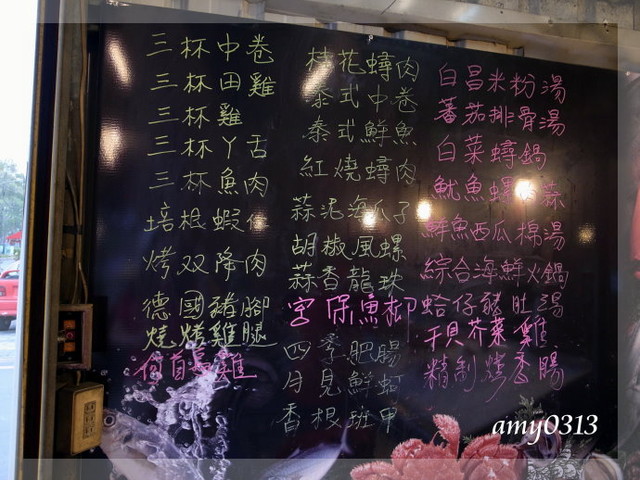 三杯中卷
三杯田雞
三杯雞
三杯丫舌
三杯魚肉
培根蝦
烤双降肉
德國豬腳
燒烤雞腿
何首烏雞
桂花蟳肉
泰式中卷
泰式鮮魚
紅燒蟳肉
蒜泥海瓜子
胡椒風螺
蒜香龍珠
宮保魚柳
四季肥腸
月見鮮蚵
香根班甲
白昌米粉湯
蕃茄排骨湯
白菜蟳鍋
魷魚螺肉蒜
鮮魚西瓜棉湯
綜合海鮮火鍋
蛤仔豬肚湯
干貝芥菜雞
精制烤香腸
amy0313